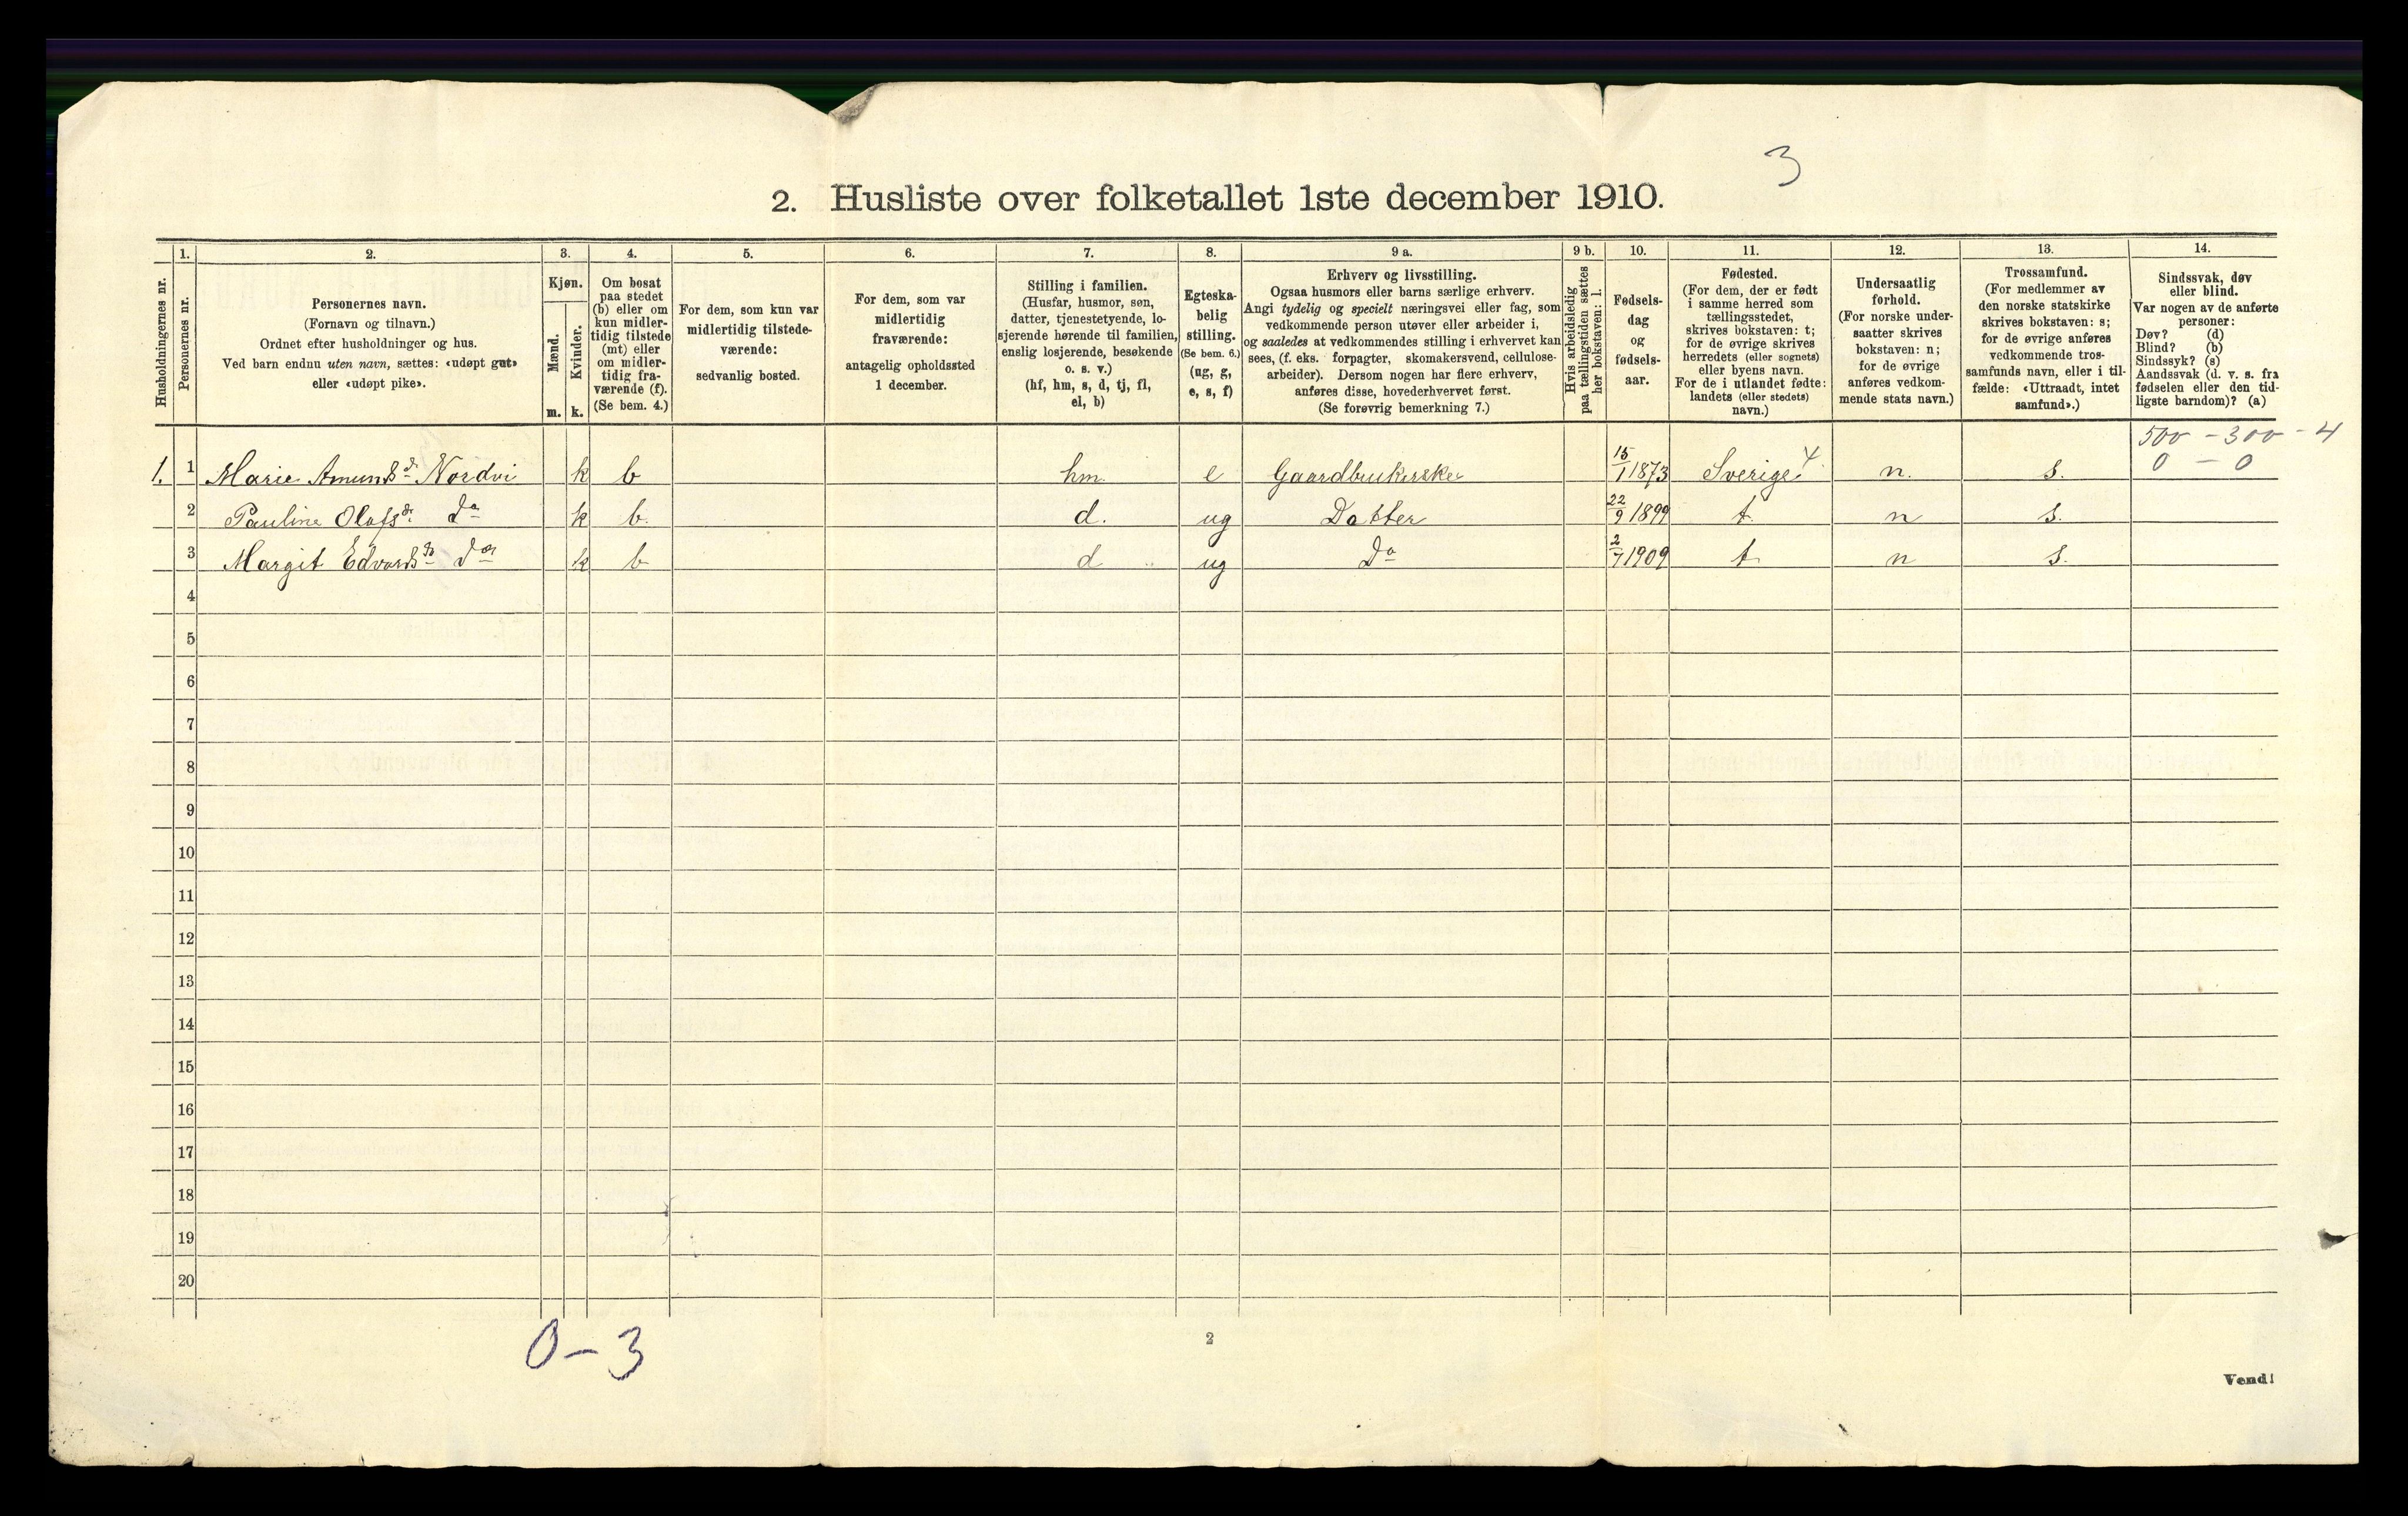 3
2. Husliste over folketallet 1ste december 1910.
Husholdningernes nr.
1.
Personernes nr.
2.
Personernes navn.
(Fornavn og tilnavn.)
Ordnet efter husholdninger og hus.
Ved barn endnu uten navn, sættes: «udøpt gut»
eller «udøpt pike».
3.
Kjøn.
Mænd.
m.
Kvinder.
k.
4.
Om bosat
paa stedet
(b) eller om
kun midler-
tidig tilstede
(mt) eller
om midler-
tidig fra-
værende (f).
(Se bem. 4.)
5.
For dem, som kun var
midlertidig tilstede-
værende:
sedvanlig bosted.
6.
For dem, som var
midlertidig
fraværende:
antagelig opholdssted
1 december.
7.
Stilling i familien.
(Husfar, husmor, søn,
datter, tjenestetyende, lo-
sjerende hørende til familien,
enslig losjerende, besøkende
o. s. v.)
(hf, hm, s, d, tj, fl,
el, b)
8.
Egteska-
belig
stilling.
(Se bem. 6.)
(ug, g,
e, s, f)
9 a.
Erhverv og livsstilling.
Ogsaa husmors eller barns særlige erhverv.
Angi tydelig og specielt næringsvei eller fag, som
vedkommende person utøver eller arbeider i,
og saaledes at vedkommendes stilling i erhvervet kan
sees, (f. eks. forpagter, skomakersvend, cellulose-
arbeider). Dersom nogen har flere erhverv,
anføres disse, hovederhvervet først.
(Se forøvrig bemerkning 7.)
9 b.
Hvis arbeidsledig
paa tællingstiden sættes
her bokstaven: l.
10.
Fødsels-
dag
og
fødsels-
aar.
11.
Fødested.
(For dem, der er født
i samme herred som
tællingsstedet,
skrives bokstaven: t;
for de øvrige skrives
herredets (eller sognets)
eller byens navn.
For de i utlandet fødte:
landets (eller stedets)
navn.)
12.
Undersaatlig
forhold.
(For norske under-
saatter skrives
bokstaven: n;
for de øvrige
anføres vedkom-
mende stats navn.)
13.
Trossamfund.
(For medlemmer av
den norske statskirke
skrives bokstaven: s;
for de øvrige anføres
vedkommende tros-
samfunds navn, eller i til-
fælde: «Uttraadt, intet
samfund».)
14.
Sindssvak, døv
eller blind.
Var nogen av de anførte
personer:
Døv? (d)
Blind? (b)
Sindssyk? (s)
Aandssvak (d. v. s. fra
fødselen eller den tid-
ligste barndom)? (a)
500 - 300 - 4
0 - 0
1. 1 Marie Amundsdr Nordvi k b hm e Gaardbrukerske 15/1 1873 Sverige 4 n. s.
2 Pauline Olafsdr Do k b. d. ug Datter 22/9 1899 t. n s.
3 Margit Edvardsdr Do k b d ug Do 2/7 1909 t. n s.
4
5
6
7
8
9
10
11
12
13
14
15
16
17
18
19
20
0-3
2
Vend!